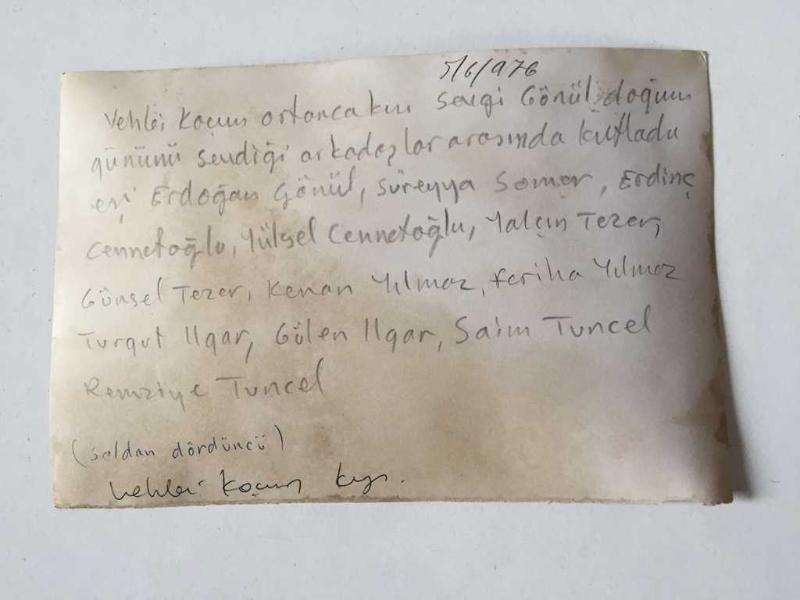 5/6/976
Vehbi Koçun ortanca kızı Sevgi Gönül doğum
gününü sevdiği arkadaşlar arasında kutladı
eşi Erdoğan Gönül, Süreyya Somer, Erdinç
Cennetoğlu, Yüksel Cennetoğlu, Yalçın Tezer,
Günsel Tezer, Kenan Yılmaz, Feriha Yılmaz
Turgut Ilgar, Gülen Ilgar, Saim Tuncel
Remziye Tuncel
(soldan dördüncü)
Vehbi Koçun kızı.